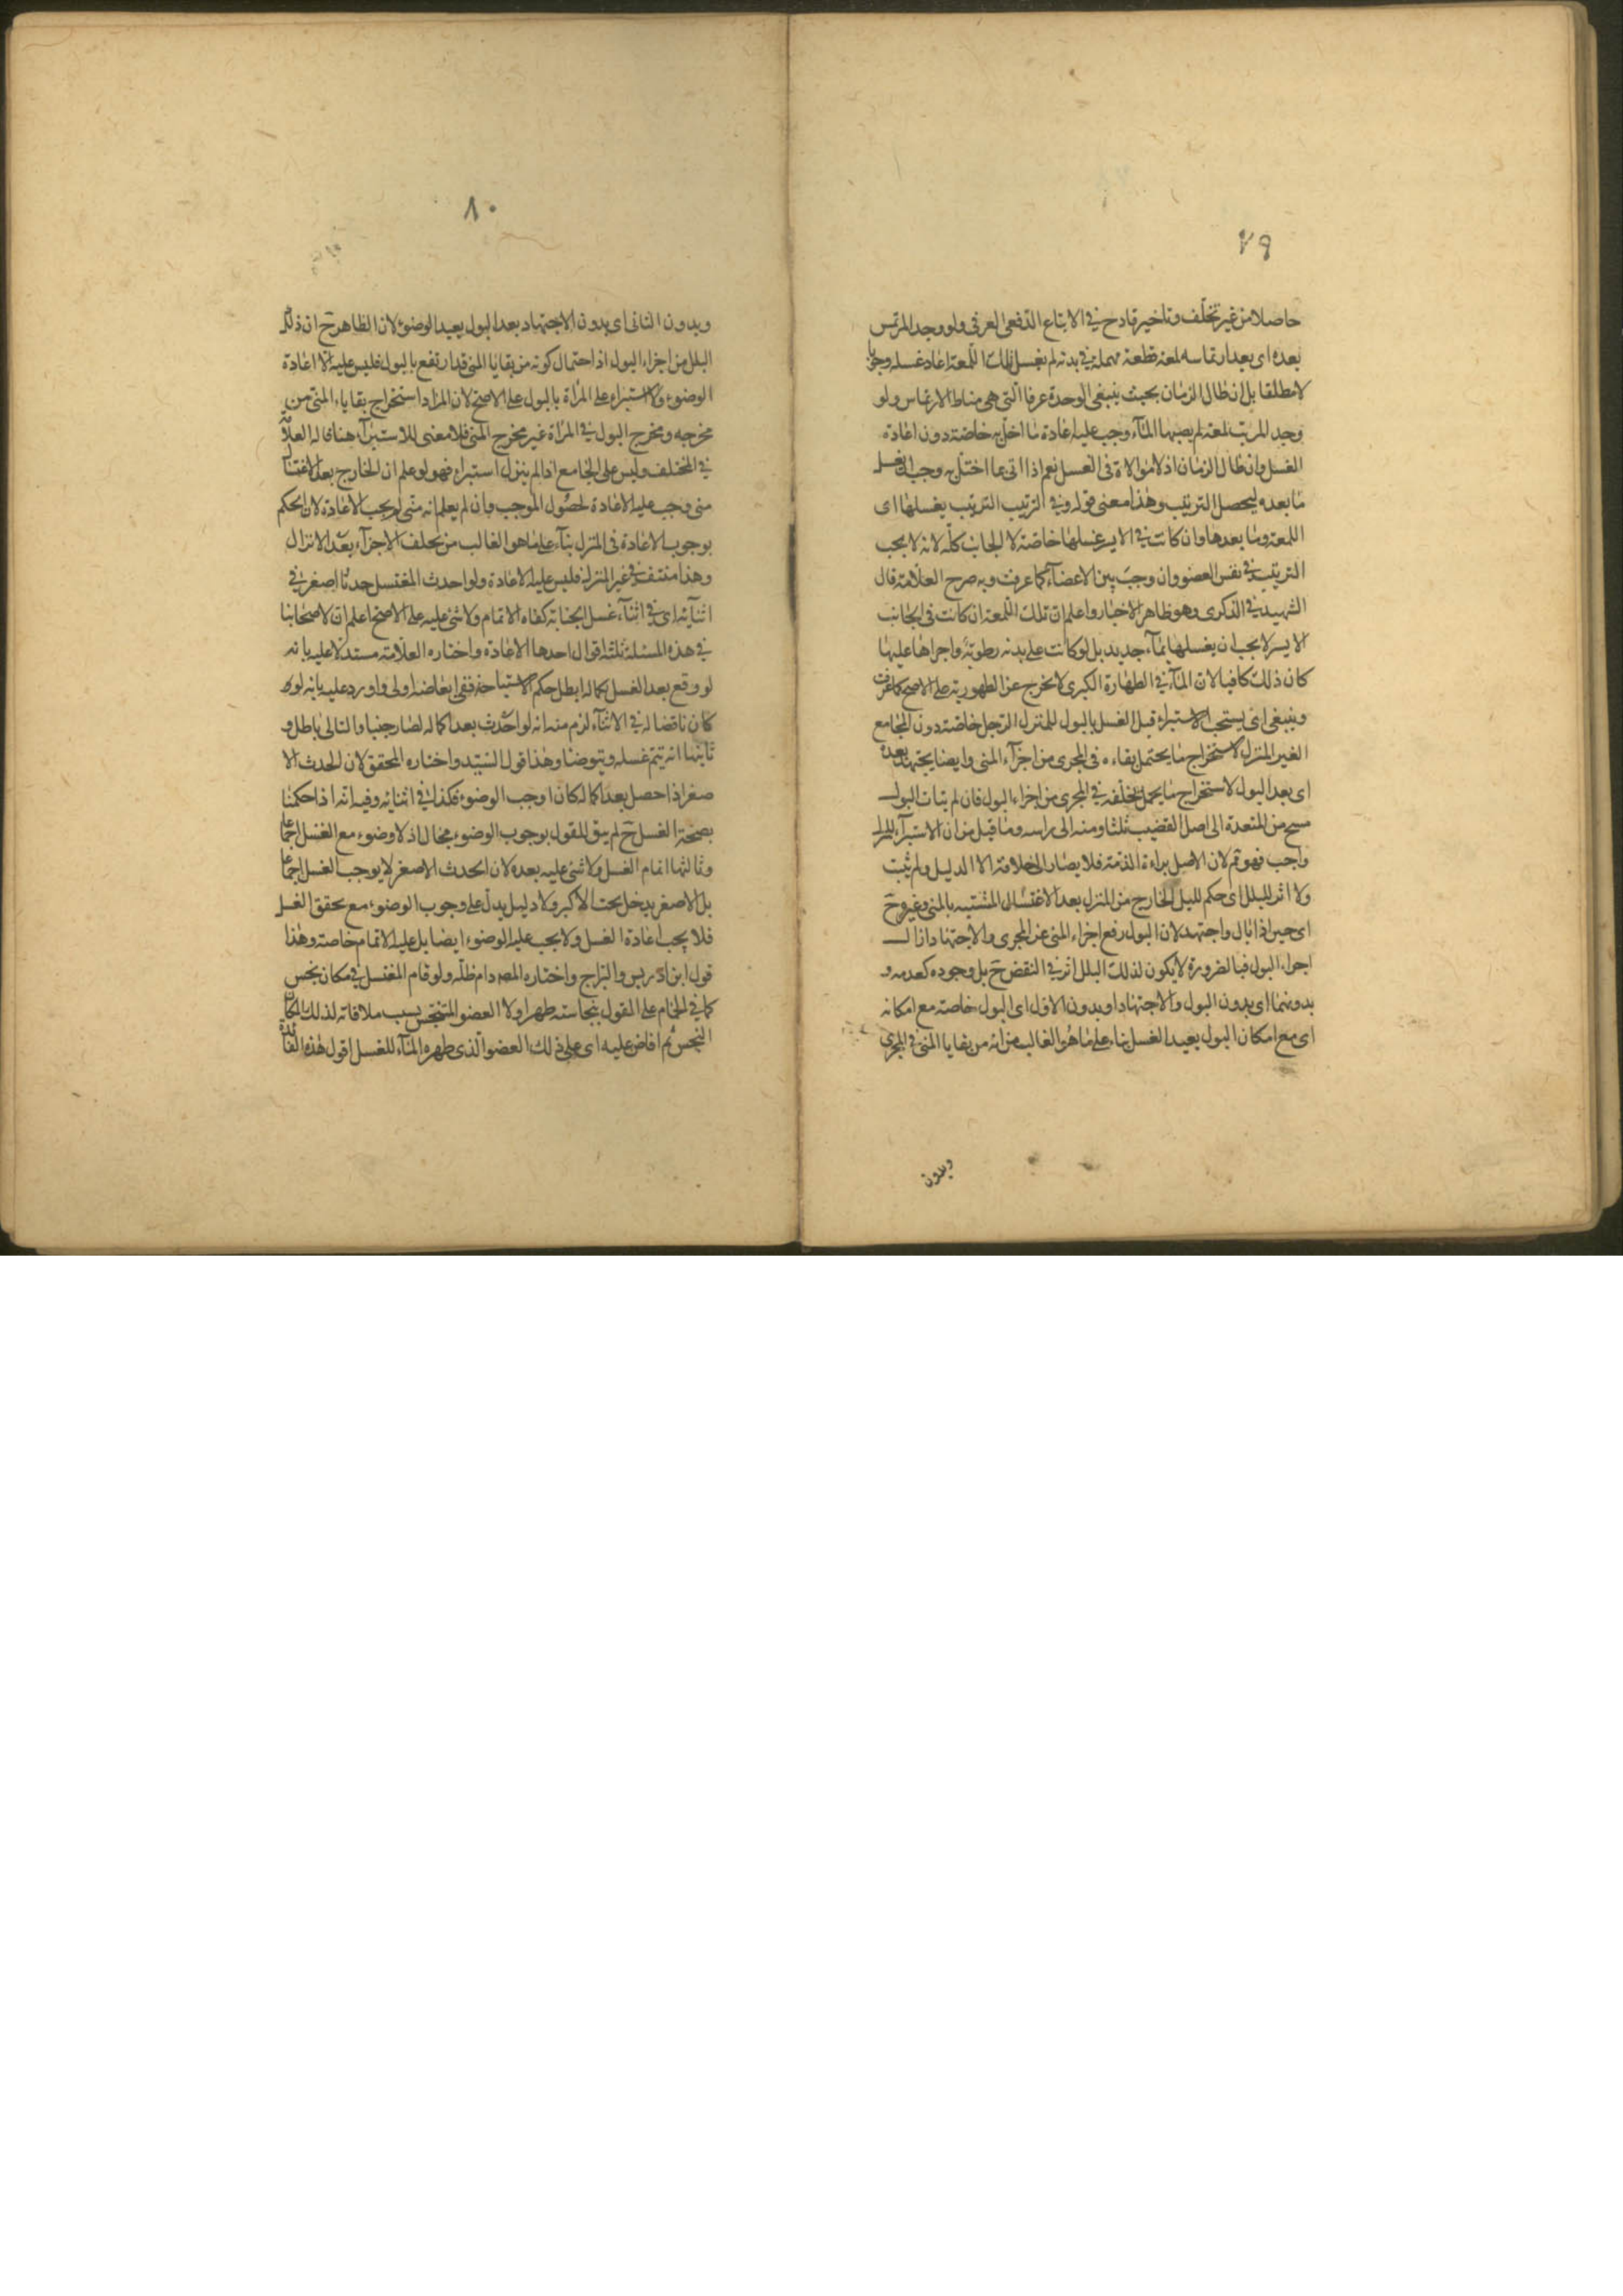 ٧٩
حاصلا من غير تخلّف وتاخير قادح في الاتباع الدّفعى العرفى ولو وجد المرتمس
بعده اى بعد ارتماسه لمعة قطعة مهملة في بدنه لم يغسل تلك اللّمعة اعاد غسله وجوبا
لا مطلقا بل ان طال الزمان بحيث ينتفى الوحدة عرفا الّتى هى مناط الارتماس ولو
وجد المرتب لمعة لم يصبها المآء وجب عليه اعادة ما اخلّ به خاصّة دون اعادة
الغسل وان طال الزمان اذ لا موالاة فى الغسل نعم اذا اتى بما اختلّ به وجب الغسل
ما بعده ليحصل الترتيب وهذا معنى قوله وفي الترتيب الترتيب يغسلها اى
اللمعة وما بعدها وان كانت في الايسر غسلها خاصّة لا الجانب كلّه لانه لا يجب
الترتيب في نفس العضو وان وجب بين الاعضآء كما عرفت وبه صرح العلّامة قال
الشهيد في الذكرى وهو ظاهر الاخبار واعلم ان تلك اللّمعة ان كانت فى الجانب
الايسر لا يجب ان يغسلها بمآء جديد بل لو كانت على بدنه رطوبة واجراها عليها
كان ذلك كافيا لان المآء في الطهارة الكبرى لا يخرج عن الطهورية على الاصح كما عرفت
وينبغى اى يستحب الاستبراء قبل الغسل بالبول للمنزل الرّجل خاصّة دون المجامع
الغير المنزل لاستخراج ما يحتمل بقاءه فى المجرى من اجزآء المنى وايضا يجتهد بعده
اى بعد البول لاستخراج ما يحتمل تخلّفه في المجرى من اجزاء البول فان لم يتات البول
مسح من المقعدة الى اصل القضيب ثلثا ومنه الى راسه وما قيل من ان الاستبرآء للمرا
واجب فهو تم لان الاصل براءة الذمّة فلا يصار الى خلافه الا الدليل ولم يثبت
ولا اثر للبلل اى حكم للبلل الخارج من المنزل بعد الاغتسال المشتبه بالمنى وغيره ح
اى حين اذا بال واجتهد لان البول رفع اجزاء المنى عن المجرى والاجتهاد ازال
اجزاء البول فبالضرورة لا يكون لذلك البلل اثر في النقض ح بل وجوده كعدمه و
بدونهما اى بدون البول والاجتهاد او بدون الاول اى البول خاصة مع امكانه
اى مع امكان البول يعيد الغسل بناء على ما هو الغالب من انه من بقايا المنى في المجرى
وبدون
٨٠
وبدون الثانى اى بدون الاجتهاد بعد البول يعيد الوضوء لان الظاهر ح ان ذلك
البلل من اجزاء البول اذ احتمال كونه من بقايا المنى قد ارتفع بالبول فليس عليه الا اعادة
الوضوء ولا استبراء على المرأة بالبول على الاصح لان المراد استخراج بقاياء المنى من
مخرجه ومخرج البول في المرأة غير مخرج المنى فلا معنى للاستبرآء هنا قاله العلّامة
في المختلف وليس على الجامع اذا لم ينزل استبراء فهو لو علم ان الخارج بعد الاغتسا
منى وجب عليه الاعادة لحصول الموجب وان لم يعلم انه منى لم يجب الاعادة لان الحكم
بوجوب الاعادة فى المنزل بنآء على ما هو الغالب من تخلف الاجزآء بعد الانزال
وهذا منتف في غير المنزل فليس عليه الاعادة ولو احدث المغتسل حدثا اصغر في
اثنآئه اى في اثنآء غسل الجنابة كفاه الاتمام ولا شئ عليه على الاصح اعلم ان لاصحابنا
في هذه المسئلة ثلثة اقوال احدها الاعادة واختاره العلّامة مستدلا عليه بانه
لو وقع بعد الغسل بكماله ابطل حكم الاستباحة ففى ابعاضه اولى واورد عليه بانه لو
كان ناقضا له في الاثنآء لزم منه انه لو احدث بعد اكماله لصار جنبا والتالى باطل و
ثانيها انه يتم غسله ويتوضا وهذا قول السّيد واختاره المحقق لان الحدث الا
صغر اذا حصل بعد اكماله كان اوجب الوضوء فكذلك في اثنائه وفيه انّه اذا حكمنا
بصحة الغسل ح لم يبق للقول بوجوب الوضوء مجال اذ لا وضوء مع الغسل اجماعا
وثالثها اتمام الغسل ولا شئ عليه بعده لان الحدث الاصغر لا يوجب الغسل اجماعا
بل الاصغر يدخل تحت الاكبر ولا دليل يدلّ على وجوب الوضوء مع تحقق الغسل
فلا يجب اعادة الغسل ولا يجب عليه الوضوء ايضا بل عليه الاتمام خاصة وهذا
قول ابن ادريس والبرّاج واختاره المصه دام ظلّه ولو قام المغتسل في مكان نجس
كما في الحمّام على القول بنجاسته طهر اولا العضو المتنجّس بسبب ملاقاته لذلك المكان
النجس ثم افاض عليه اى على ذلك العضو الّذى طهره المآء للغسل اقول هذه الفائدة